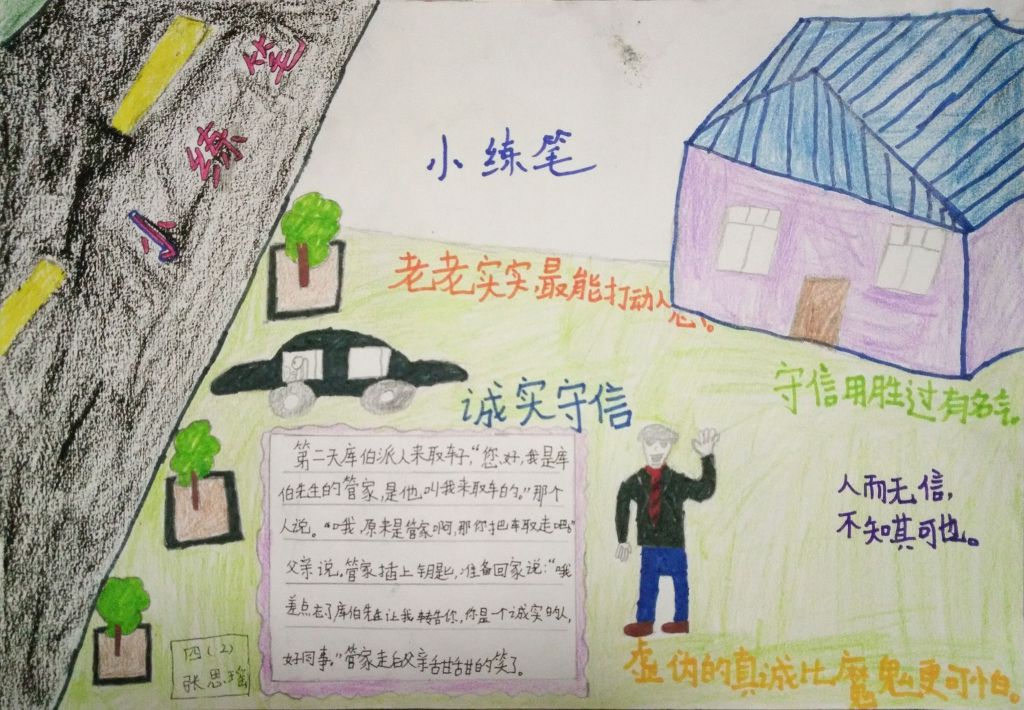 小练笔
小练笔
老老实实,最能打动人心。
诚实守信
守信用胜过有名气。
第二天库伯派人来取车子,“您好,我是库
伯先生的管家,是他叫我来取车的。”那个
人说。“哦,原来是管家啊,那你把车取走吧。”
父亲说,管家插上钥匙,准备回家说:“哦
差点忘了库伯先生让我转告你,你是一个诚实的人,
好同事。”管家走后父亲甜甜的笑了。
人而无信,
不知其可也。
四(2)
张思瑶
虚伪的真诚比魔鬼更可怕。